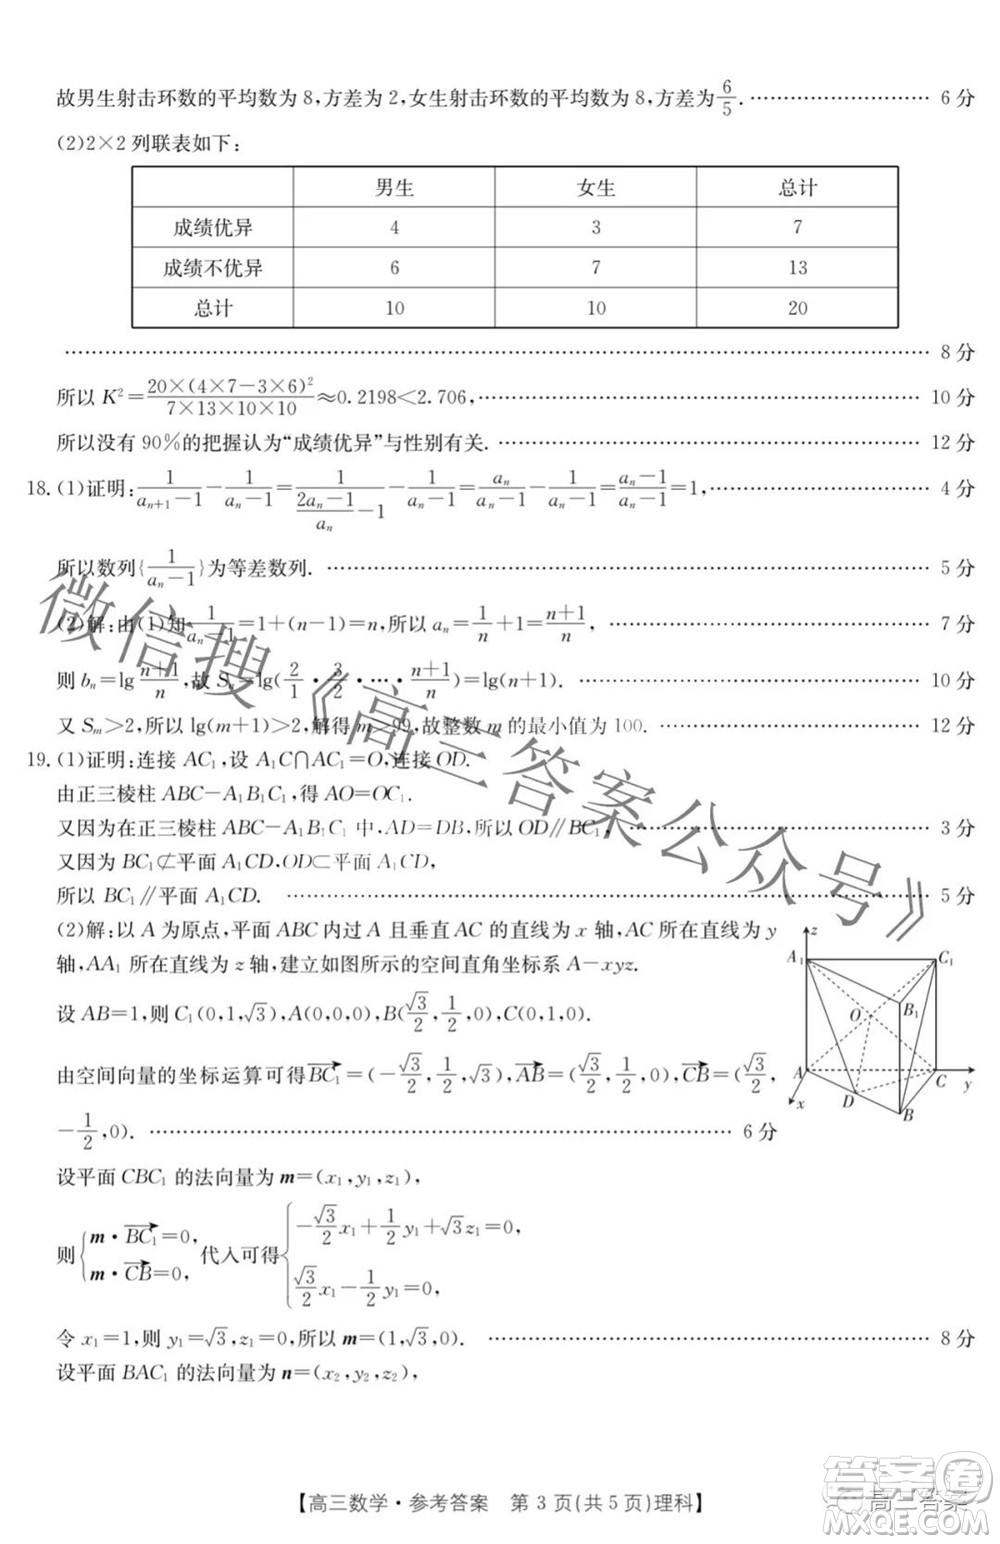 故男生射击环数的平均数为 8,方差为 2,女生射击环数的平均数为 8,方差为6/5. 6 分
(2)2×2 列联表如下:
男生 女生 总计
成绩优异 4 3 7
成绩不优异 6 7 13
总计 10 10 20
8 分
所以 K²=20×(4×7-3×6)²/(7×13×10×10)≈0.2198<2.706, 10 分
所以没有 90%的把握认为“成绩优异”与性别有关. 12 分
18.(1)证明: 1/(aₙ₊₁-1) - 1/(aₙ-1) = 1/((2aₙ-1)/aₙ -1) - 1/(aₙ-1) = aₙ/(aₙ-1) - 1/(aₙ-1) = (aₙ-1)/(aₙ-1) =1, 4 分
所以数列{1/(aₙ-1)}为等差数列. 5 分
(2)解:由(1)知1/(aₙ-1)=1+(n-1)=n,所以 aₙ=1/n+1=(n+1)/n, 7 分
则 bₙ=lg (n+1)/n,故 Sₙ=lg(2/1·3/2·…·(n+1)/n)=lg(n+1). 10 分
又 Sₘ>2,所以 lg(m+1)>2,解得 m>99,故整数 m 的最小值为 100. 12 分
19.(1)证明:连接 AC₁,设 A₁C∩AC₁=O,连接 OD.
由正三棱柱 ABC-A₁B₁C₁,得 AO=OC₁.
又因为在正三棱柱 ABC-A₁B₁C₁ 中,AD=DB,所以 OD∥BC₁, 3 分
又因为 BC₁⊄平面 A₁CD,OD⊂平面 A₁CD,
所以 BC₁∥平面 A₁CD. 5 分
(2)解:以 A 为原点,平面 ABC 内过 A 且垂直 AC 的直线为 x 轴,AC 所在直线为 y
轴,AA₁ 所在直线为 z 轴,建立如图所示的空间直角坐标系 A-xyz.
设 AB=1,则 C₁(0,1,√3),A(0,0,0),B(√3/2,1/2,0),C(0,1,0).
由空间向量的坐标运算可得BC₁→=(-√3/2,1/2,√3),AB→=(√3/2,1/2,0),CB→=(√3/2,
-1/2,0). 6 分
z
A₁ C₁
B₁
O
A C y
D B
x
设平面 CBC₁ 的法向量为 m=(x₁,y₁,z₁),
则{m·BC₁→=0, m·CB→=0, 代入可得{-√3/2x₁+1/2y₁+√3z₁=0, √3/2x₁-1/2y₁=0,
令 x₁=1,则 y₁=√3,z₁=0,所以 m=(1,√3,0). 8 分
设平面 BAC₁ 的法向量为 n=(x₂,y₂,z₂),
【高三数学·参考答案 第 3 页(共 5 页)理科】
微信搜《高三答案公众号》
高三答案
答案圈
MXQE.COM